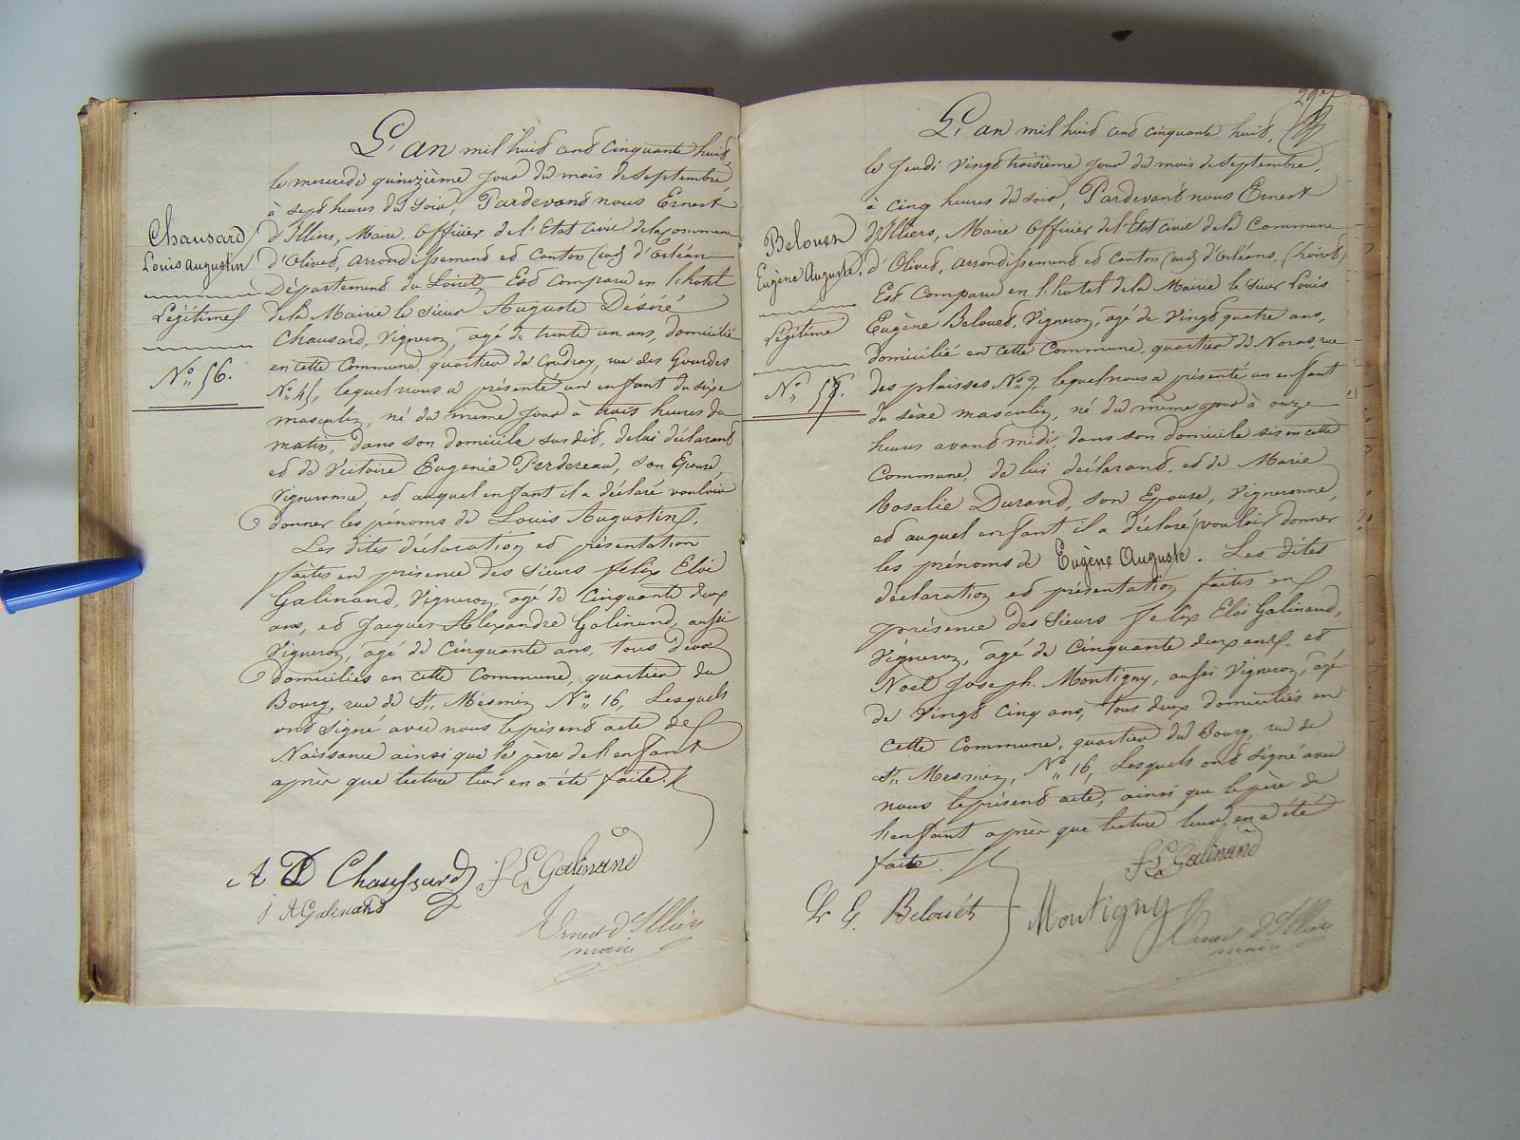 Chausard
Louis Augustin
Légitime
N° 56.
L'an mil huit cent cinquante huit,
le mercredi quinzième jour du mois de Septembre,
à sept heures du soir, Pardevant nous Ernest
d'Illiers, Maire, Officier de l'Etat Civil de la Commune
d'Olivet, arrondissement et Canton (sud) d'Orléans
Département du Loiret, Est Comparu en l'hotel
de la Mairie le Sieur Auguste Désiré
Chausard, Vigneron, agé de trente un ans, domicilié
en cette Commune, quartier du Coudray, rue des Gourdes
N° 45, lequel nous a présenté un enfant du sexe
masculin, né du même jour à trois heures du
matin, dans son domicile susdit, de lui déclarant
et de Victoire Eugenie Perdereau, son Epouse,
Vigneronne, et auquel enfant il a déclaré vouloir
donner les prénoms de Louis Augustin.
Les dites déclaration et présentation
faites en présence des Sieurs Felix Eloi
Galinand, Vigneron, agé de Cinquante deux
ans, et Jacques Alexandre Galinand, aussi
Vigneron, agé de Cinquante ans, tous deux
domiciliés en cette Commune, quartier du
Bourg, rue de St. Mesmin N° 16, Lesquels
ont signé avec nous le présent acte de
Naissance ainsi que le père de l'enfant
après que lecture leur en a été faite.
A D Chaussard F E Galinand
J A Galinand
Ernest d'Illiers
maire
29
Belouet
Eugène Auguste.
Légitime
N° 58.
L'an mil huit cent cinquante huit,
le Jeudi vingt troisième jour du mois de Septembre,
à cinq heures du soir, Pardevant nous Ernest
d'Illiers, Maire Officier de l'Etat Civil de la Commune
d'Olivet, arrondissement et Canton (sud) d'Orléans, (Loiret)
Est Comparu en l'hotel de la Mairie le Sieur Louis
Eugène Belouet, Vigneron, agé de Vingt quatre ans,
domicilié en cette Commune, quartier de Noras, rue
des plaisses N° 7, lequel nous a présenté un enfant
du sexe masculin, né du même jour à onze
heures avant midi, dans son domicile sis en cette
Commune, de lui déclarant, et de Marie
Rosalie Durand, son Epouse, Vigneronne,
et auquel enfant il a déclaré vouloir donner
les prénoms de Eugène Auguste. Les dites
déclaration et présentation faites en
présence des Sieurs Felix Eloi Galinand,
Vigneron, agé de Cinquante deux ans, et
Noel Joseph Montigny, aussi Vigneron, agé
de Vingt Cinq ans, tous deux domiciliés en
cette Commune, quartier du Bourg, rue de
St. Mesmin, N° 16, Lesquels ont signé avec
nous le présent acte, ainsi que le père de
l'enfant après que lecture leur en a été
faite.
F E Galinand
L E Belouët Montigny
Ernest d'Illiers
maire